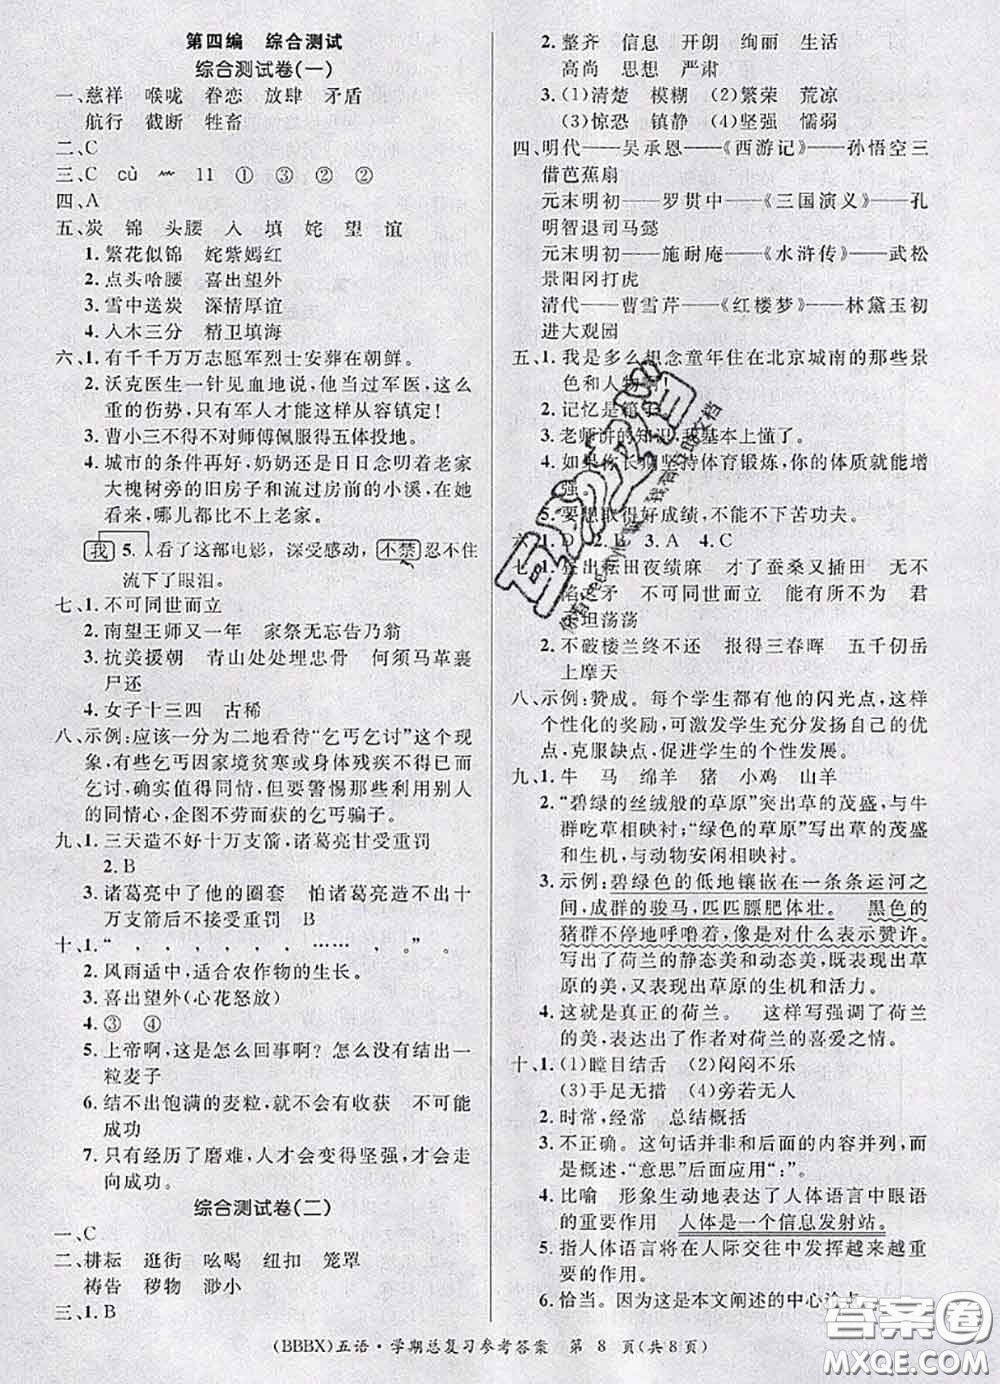 第四编　综合测试
综合测试卷(一)
一、慈祥　喉咙　眷恋　放肆　矛盾
航行　截断　牲畜
二、C
三、C　cù　﹏　11　①　③　②　②
四、A
五、炭　锦　头腰　入　填　姹　望　谊
1. 繁花似锦　姹紫嫣红
2. 点头哈腰　喜出望外
3. 雪中送炭　深情厚谊
4. 入木三分　精卫填海
六、1. 有千千万万志愿军烈士安葬在朝鲜。
2. 沃克医生一针见血地说,他当过军医,这么
重的伤势,只有军人才能这样从容镇定!
3. 曹小三不得不对师傅佩服得五体投地。
4. 城市的条件再好,奶奶还是日日念叨着老家
大槐树旁的旧房子和流过房前的小溪,在她
看来,哪儿都比不上老家。
我　5. 看了这部电影,深受感动,不禁忍不住
流下了眼泪。
七、1. 不可同世而立
2. 南望王师又一年　家祭无忘告乃翁
3. 抗美援朝　青山处处埋忠骨　何须马革裹
尸还
4. 女子十三四　古稀
八、示例:应该一分为二地看待“乞丐乞讨”这个现
象,有些乞丐因家境贫寒或身体残疾不得已而
乞讨,确实值得同情,但要警惕那些利用别人
的同情心,企图不劳而获的乞丐骗子。
九、1. 三天造不好十万支箭,诸葛亮甘受重罚
2. B
3. 诸葛亮中了他的圈套　怕诸葛亮造不出十
万支箭后不接受重罚　B
十、1. “　，　，　，　，　……　，　。”　。
2. 风雨适中,适合农作物的生长。
3. 喜出望外(心花怒放)
4. ③　④
5. 上帝啊,这是怎么回事啊? 怎么没有结出一
粒麦子
6. 结不出饱满的麦粒,就不会有收获　不可能
成功
7. 只有经历了磨难,人才会变得坚强,才会走
向成功。
综合测试卷(二)
一、C
二、耕耘　逛街　吆喝　纽扣　笼罩
祷告　秽物　渺小
三、1. B
2. 整齐　信息　开朗　绚丽　生活
高尚　思想　严肃
3. (1)清楚　模糊　(2)繁荣　荒凉
(3)惊恐　镇静　(4)坚强　懦弱
四、明代——吴承恩——《西游记》——孙悟空三
借芭蕉扇
元末明初——罗贯中——《三国演义》——孔
明智退司马懿
元末明初——施耐庵——《水浒传》——武松
景阳冈打虎
清代——曹雪芹——《红楼梦》——林黛玉初
进大观园
五、1. 我是多么想念童年住在北京城南的那些景
色和人物啊!
2. 记忆是
3. 老师讲的知识,我基本上懂了。
4. 如果你长期坚持体育锻炼,你的体质就能增
强。
5. 要想取得好成绩,不能不下苦功夫。
六、1. D　2. B　3. A　4. C
七、1. 昼出耘田夜绩麻　才了蚕桑又插田　无不
陷之矛　不可同世而立　能有所不为　君
子坦荡荡
2. 不破楼兰终不还　报得三春晖　五千仞岳
上摩天
八、示例:赞成。每个学生都有他的闪光点,这样
个性化的奖励,可激发学生充分发扬自己的优
点,克服缺点,促进学生的个性发展。
九、1. 牛　马　绵羊　猪　小鸡　山羊
2. “碧绿的丝绒般的草原”突出草的茂盛,与牛
群吃草相映衬;“绿色的草原”写出草的茂盛
和生机,与动物安闲相映衬。
3. 示例:碧绿色的低地镶嵌在一条条运河之
间,成群的骏马,匹匹膘肥体壮。　黑色的
猪群不停地呼噜着,像是对什么表示赞许。
写出了荷兰的静态美和动态美,既表现出草
原的美,又表现出草原的生机和活力。
4. 这就是真正的荷兰。　这样写强调了荷兰
的美,表达出了作者对荷兰的喜爱之情。
十、1. (1)瞠目结舌　(2)闷闷不乐
(3)手足无措　(4)旁若无人
2. 时常,经常　总结概括
3. 不正确。这句话并非和后面的内容并列,而
是概述,“意思”后面应用“:”。
4. 比喻　形象生动地表达了人体语言中眼语
的重要作用　人体是一个信息发射站。
5. 指人体语言将在人际交往中发挥越来越重
要的作用。
6. 恰当。因为这是本文阐述的中心论点。
(BBBX)五语·学期总复习参考答案　第 8 页(共8页)
答案圈
MXQE.COM